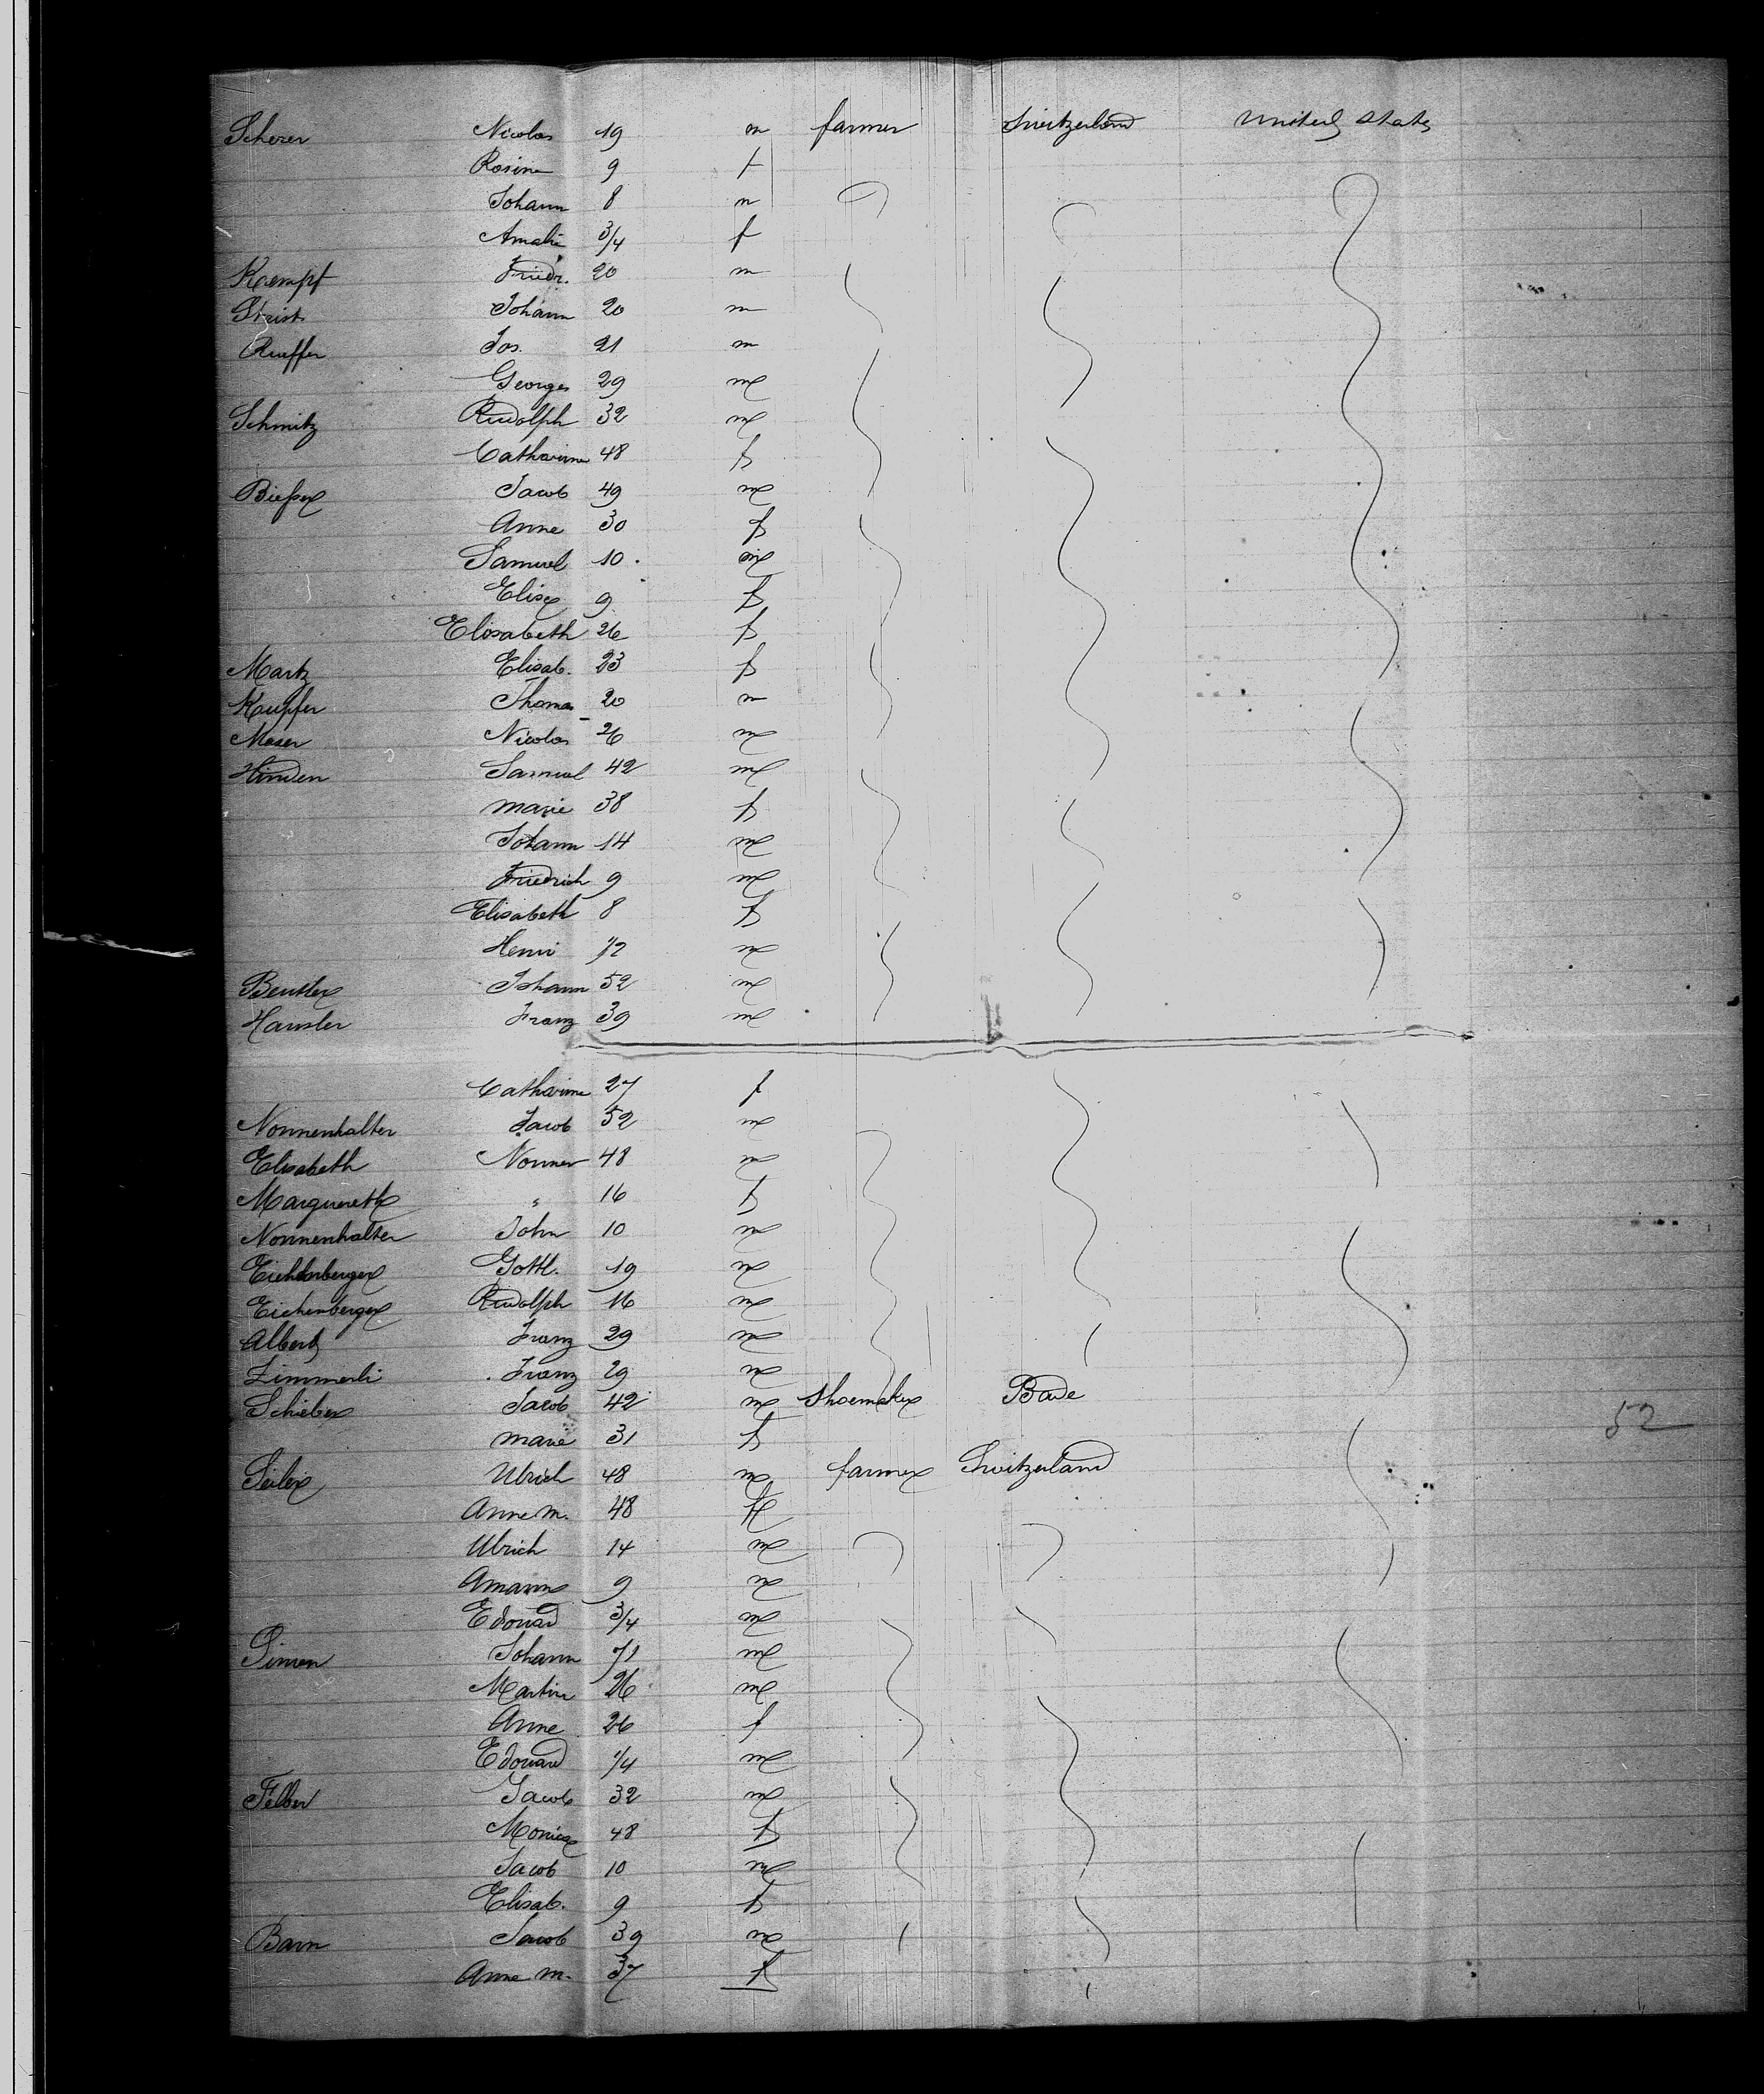 Scherer Nicolas 19 m farmer Switzerland United States
Rosine 9 f
Johann 8 m
Amalie 3/4 f
Kempf Friedr. 20 m
Johann 20 m
Rueffer Jos. 21 m
Georges 29 m
Schmitz Rudolph 32 m
Catharine 48 f
Jacob 49 m
Anne 30 f
Samuel 10 m
Elise 9 f
Elisabeth 26 f
Martz Elisab. 23 f
Kupfer Thomas 20 m
Moser Nicolas 26 m
Hinden Samuel 42 m
Marie 38 f
Johann 14 m
Friedrich 9 m
Elisabeth 8 f
Henri 1/2 m
Beutler Johann 52 m
Hansler Franz 39 m
Catharine 27 f
Nonnenhalter Jacob 52 m
Elisabeth Nonner 48 m
Margureth " 16 f
Nonnenhalter John 10 m
Eichenberger Gottl. 19 m
Eichenberger Rudolph 16 m
Albert Franz 29 m
Zimmerli Franz 29 m
Schieber Jacob 42 m shoemaker Bade
52
Marie 31 f
Seiler Ulrich 48 m farmer Switzerland
Anne M. 48 f
Ulrich 14 m
Amann 9 m
Edouard 3/4 m
Simon Johann 71 m
Martin 26 m
Anne 26 f
Edouard 1/4 m
Felber Jacob 32 m
Monica 48 f
Jacob 10 m
Elisab. 9 f
Barn Jacob 39 m
Anne M. 37 f